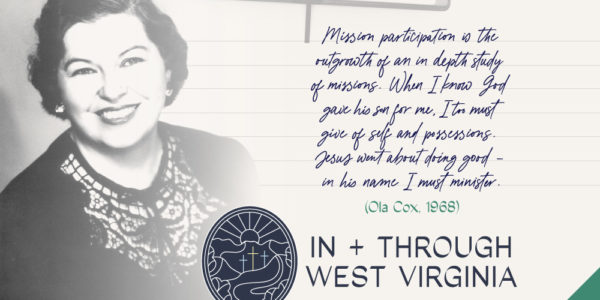 Mission participation is the
outgrowth of an in depth study
of missions. When I know God
gave his son for me, I too must
give of self and possessions.
Jesus went about doing good -
in his name I must minister.
(Ola Cox, 1968)
IN + THROUGH
WEST VIRGINIA